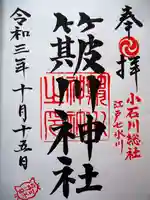 奉拝
小石川総社
江戸七氷川
簸川神社
令和三年十月十五日